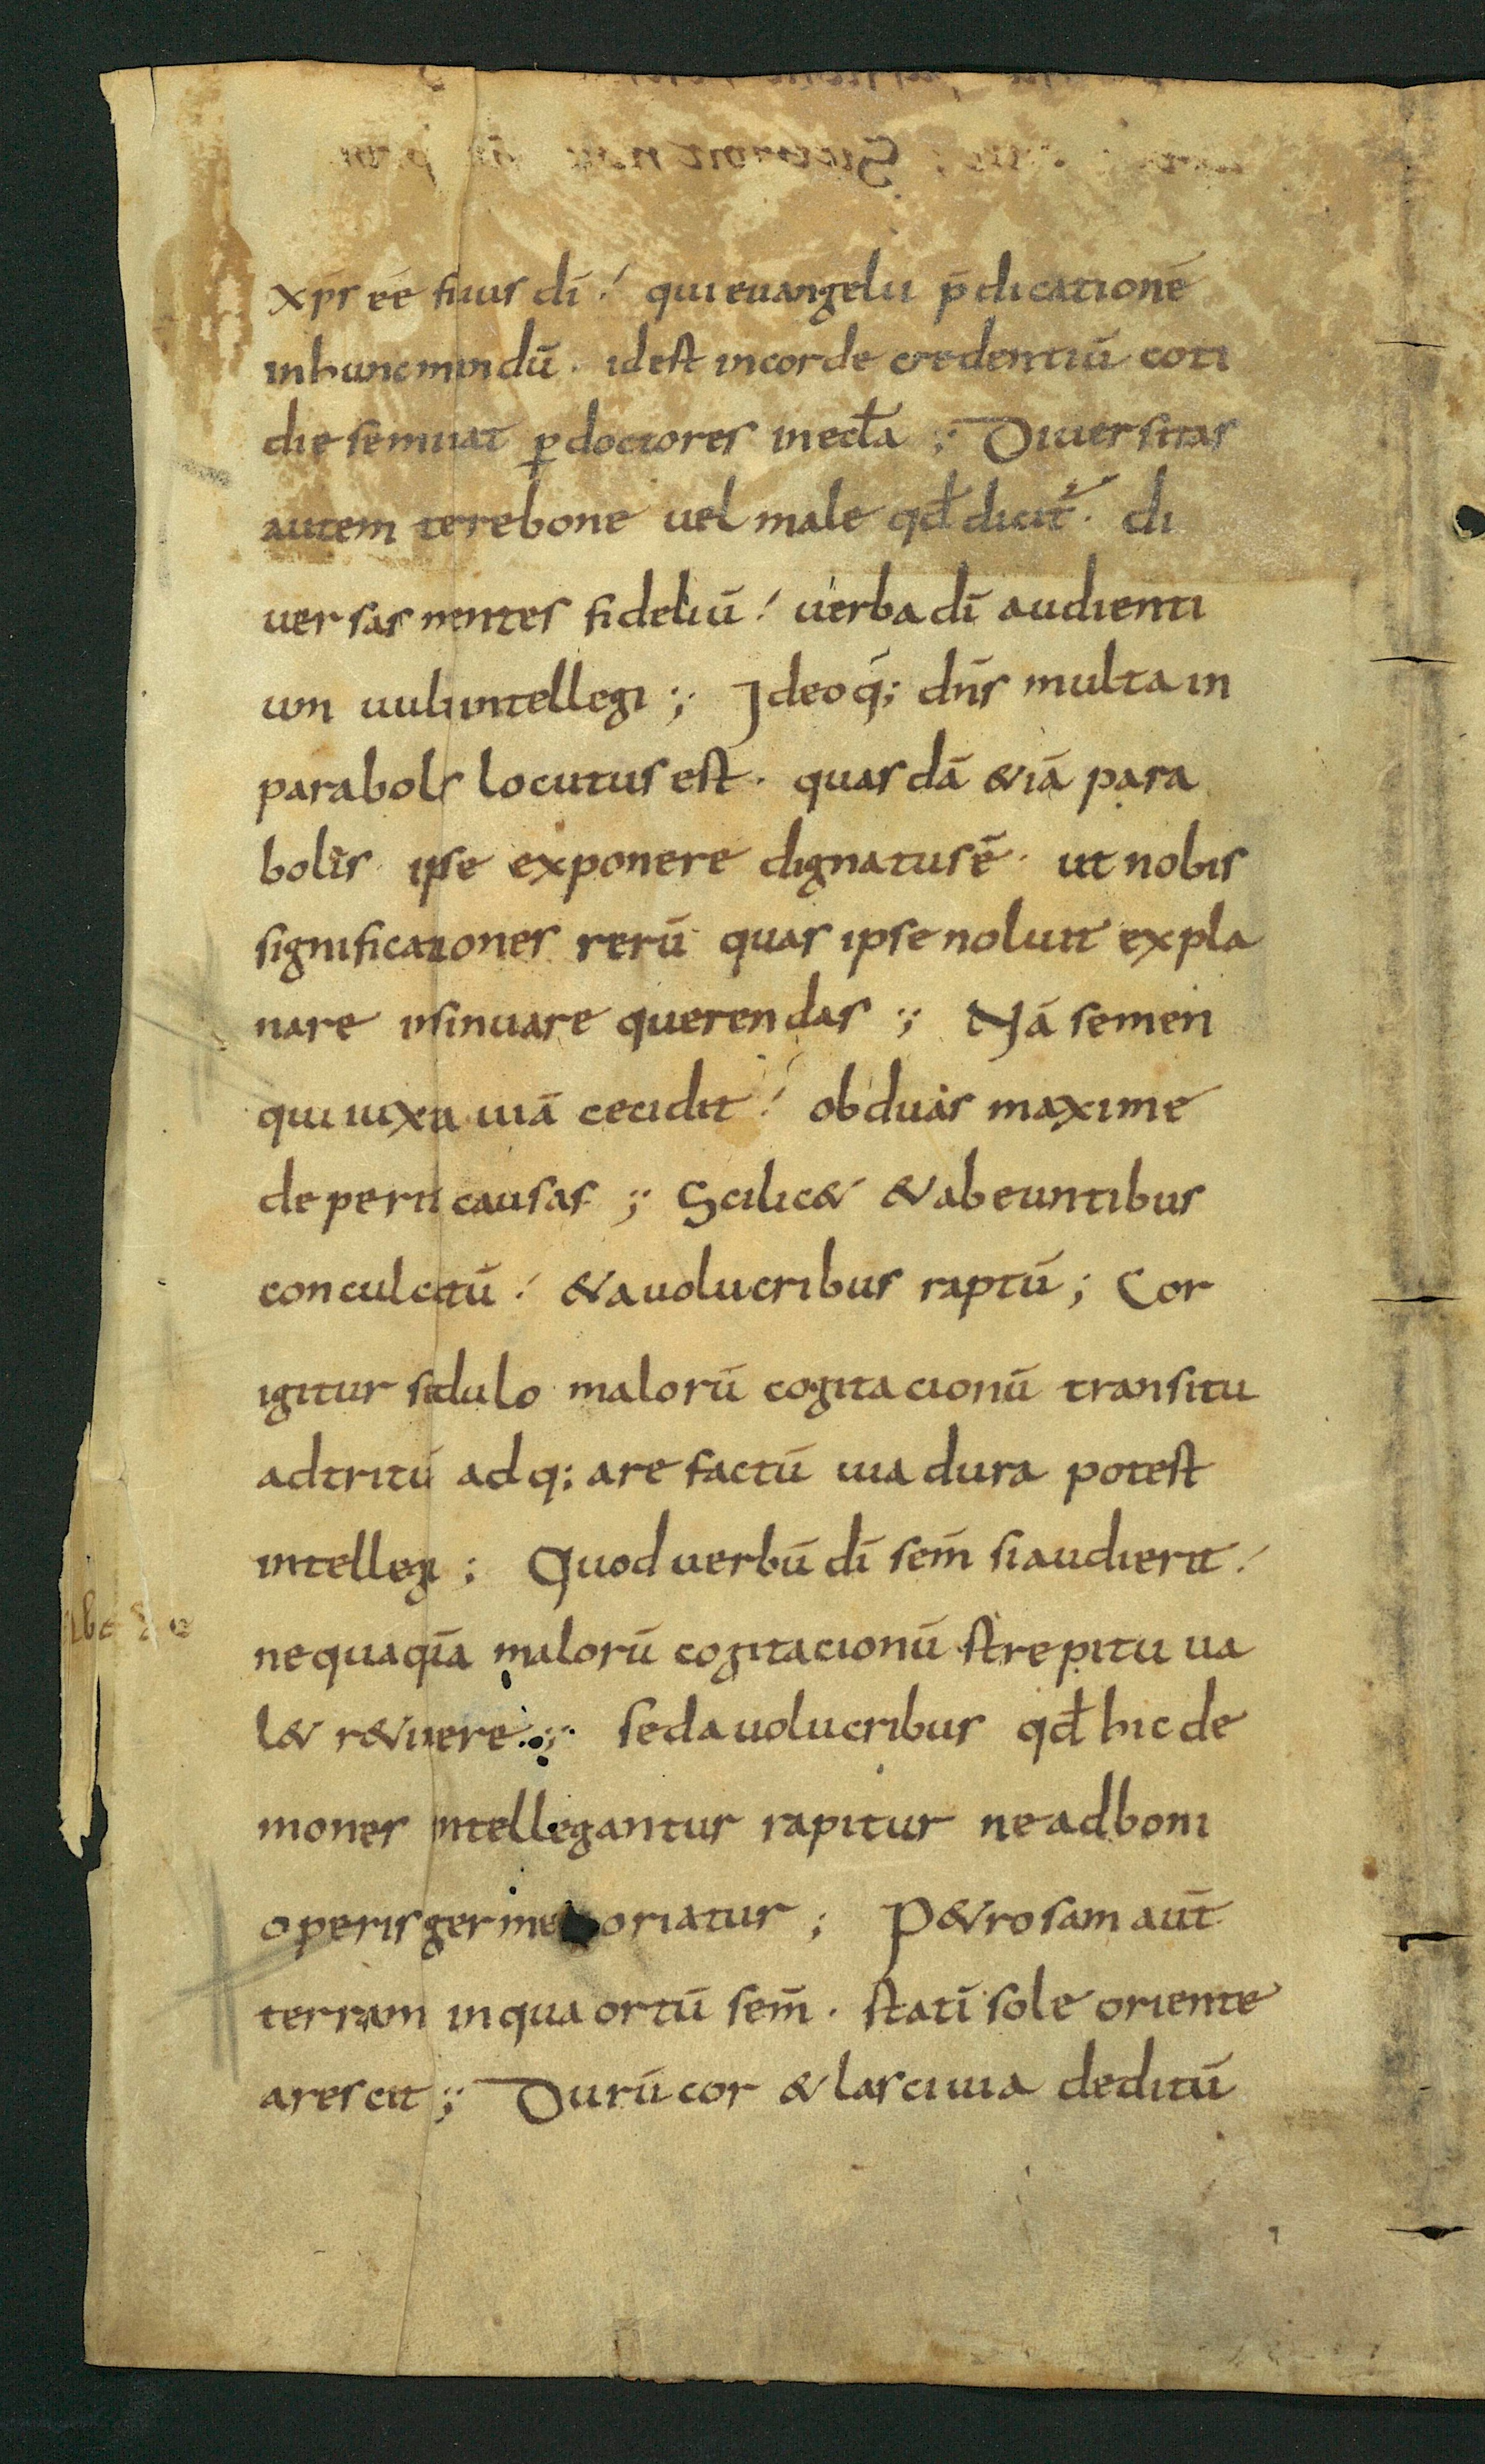 xp̄s eē fiius dī / qui euangelii p̄dicationē
in hunc mindū . id est in corde credentiū coti
die seminat ꝑ doctores in ecl̄a ; Diuersitas
autem terebone uel male qd̄ dicit̄ . di
uersas mentes fideliū / uerba dī audienti
um uul intellegi ; Ideoq; dn̄s multa in
parabols locutus est . quasdā &iā para
bolis ipse exponere dignatus ē . ut nobis
significationes rerū quas ipse noluit expla
nare insinuare querendas ; Nā semen
qui iuxta uiā cecidit / ob duas maxime
deperit causas ; Scilic& & abeuntibus
conculcatū / & a uolucribus raptū ; Cor
igitur sedulo malorū cogitacionū transitu
adtritū adq; arefactū uia dura potest
intellegi ; Quod uerbū dī sem̄ si audierit /
nequaquā malorū cogitacionū strepitu ua
l& r&inere ; sed a uolucribus qd̄ hic de
mones intellegantur rapitur ne ad boni
operis germe oriatur ; P&rosam aut̄
terram in qua ortū sem̄ . statī sole oriente
arescit ; Durū cor & lasciuia deditū